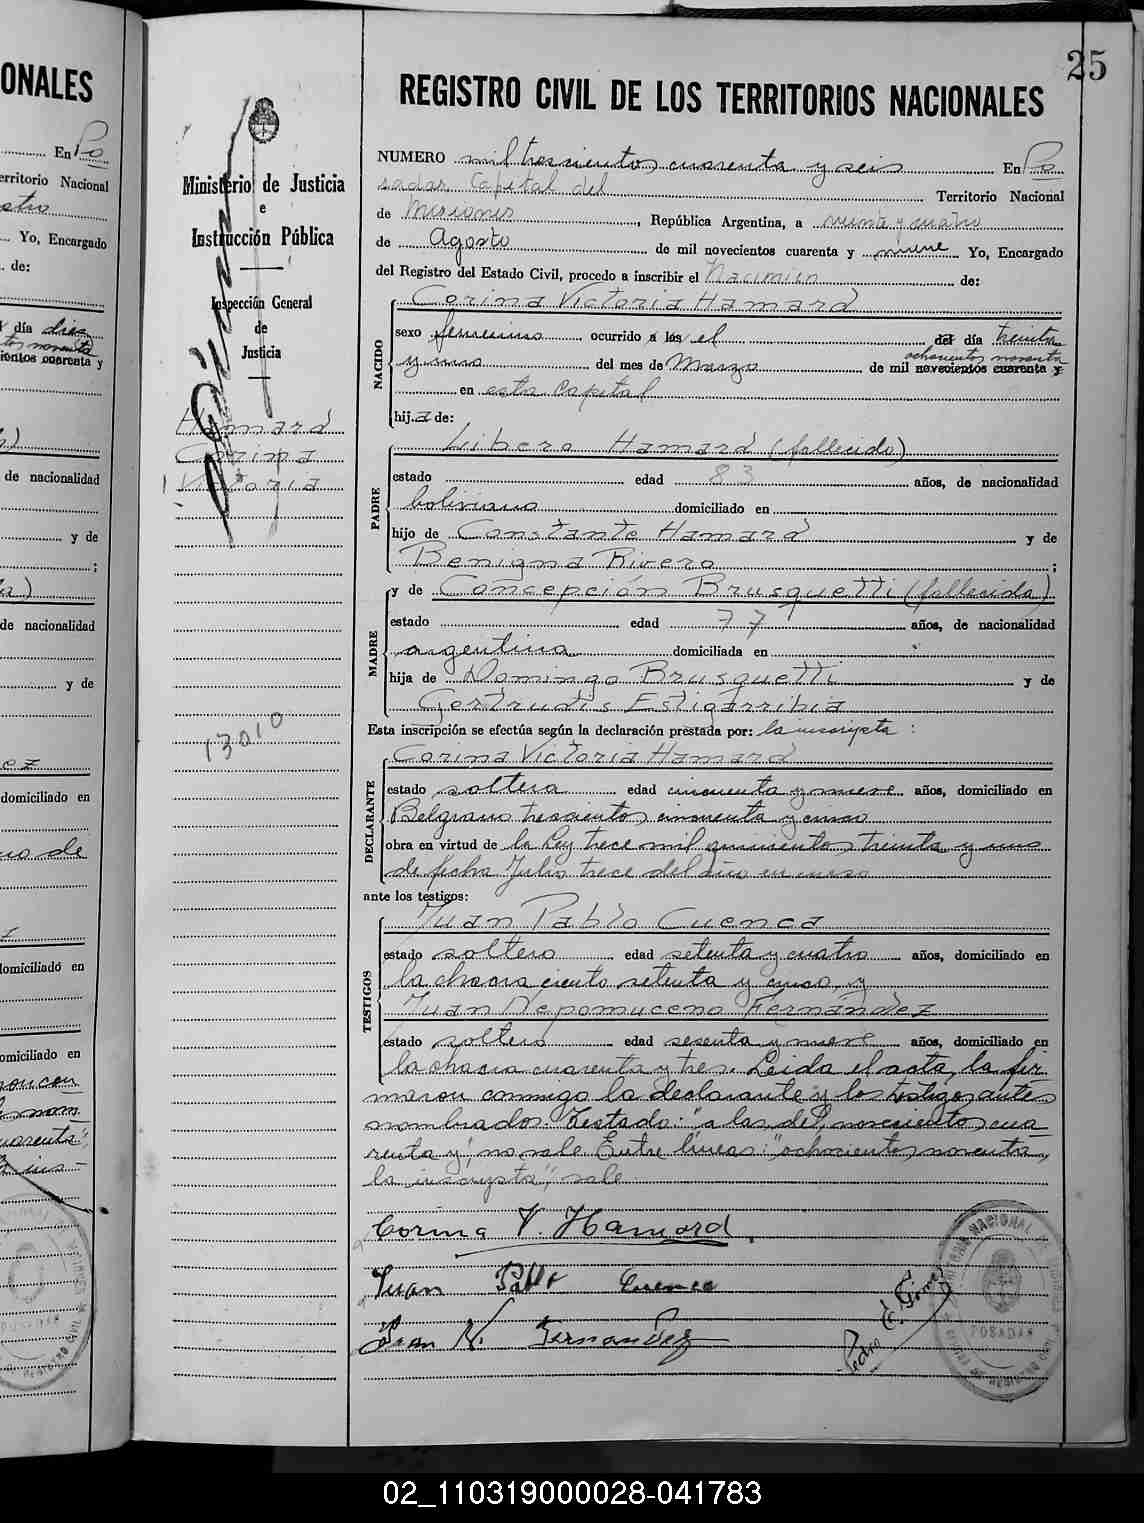 25
REGISTRO CIVIL DE LOS TERRITORIOS NACIONALES
NUMERO mil trescientos cuarenta y seis En Po
sadas Capital del Territorio Nacional
de Misiones, República Argentina, a veinte y cuatro
de Agosto de mil novecientos cuarenta y nueve Yo, Encargado
del Registro del Estado Civil, procedo a inscribir el Nacimien de:
Corina Victoria Hamard
NACIDO
sexo femenino ocurrido a las el del día treinta
y uno del mes de Marzo de mil novecientos cuarenta y
ochocientos noventa
en esta capital
hija de:
PADRE
Libero Hamard (fallecido)
estado edad 83 años, de nacionalidad
boliviano domiciliado en
hijo de Constante Hamard y de
Benigna Rivero;
MADRE
y de Concepción Brusquetti (fallecida)
estado edad 77 años, de nacionalidad
argentina domiciliada en
hija de Domingo Brusquetti y de
Gertrudis Estigarribia
Esta inscripción se efectúa según la declaración prestada por: la inscripta:
DECLARANTE
Corina Victoria Hamard
estado soltera edad cincuenta y nueve años, domiciliado en
Belgrano trescientos cincuenta y cinco
obra en virtud de la Ley trece mil quinientos treinta y uno
de fecha Julio trece del año en curso
ante los testigos:
TESTIGOS
Juan Pablo Cuenca
estado soltero edad setenta y cuatro años, domiciliado en
la chacra ciento setenta y cinco, y
Juan Nepomuceno Fernandez
estado soltero edad sesenta y nueve años, domiciliado en
la chacra cuarenta y tres. Leida el acta, la fir-
maron conmigo la declarante y los testigos antes
nombrados. Testado: "a las, del, novecientos cua-
renta y", no vale. Entre líneas: "ochocientos noventa,
la inscripta", vale
Corina V. Hamard.
Juan Pablo Cuenca
Juan N. Fernandez
Pedro E. Gomez
POSADAS
Ministerio de Justicia
e
Instrucción Pública
Inspección General
de
Justicia
Hamard
Corina
Victoria
13010
ONALES
En Po
erritorio Nacional
Yo, Encargado
de:
día dies
cientos cuarenta y
de nacionalidad
y de
;
de nacionalidad
y de
ez
domiciliado en
domiciliado en
omiciliado en
02_110319000028-041783